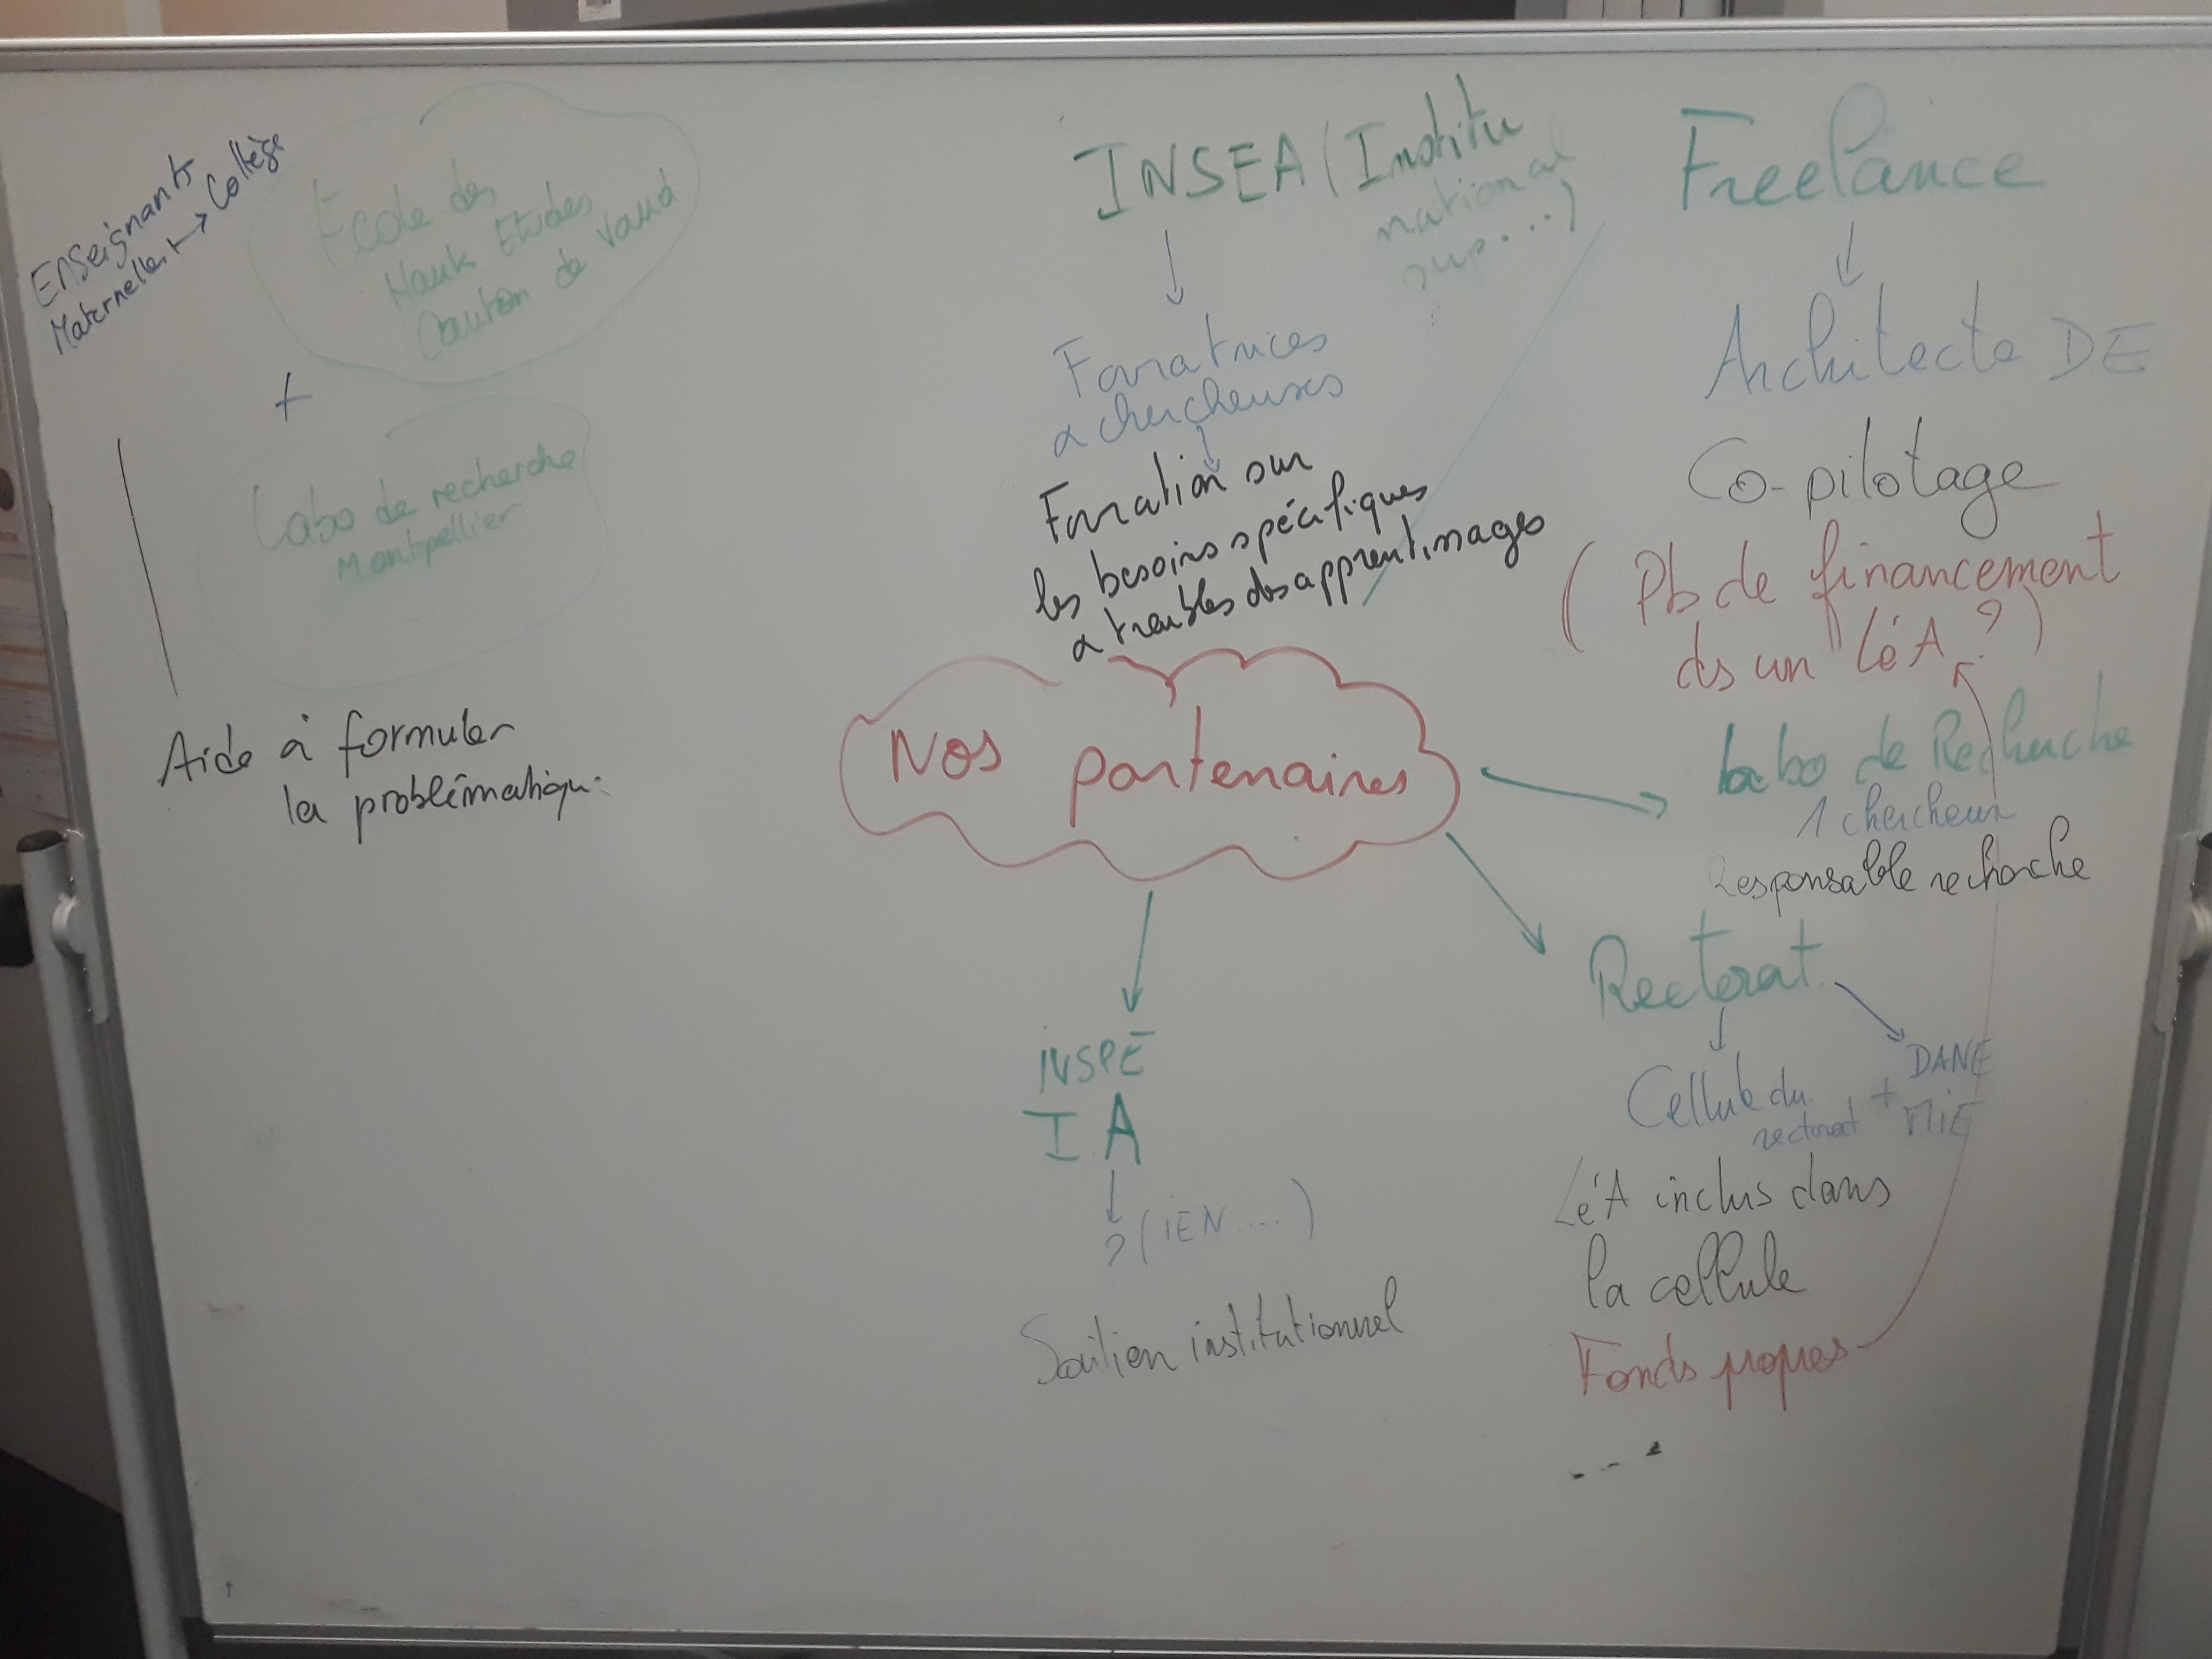 Enseignants
Maternelle → Collège
Ecole des
Hauts Etudes
Canton de Vaud
+
Labo de recherche
Montpellier
Aide à formuler
la problématique
INSEA (Institu
national
sup...)
Formatrices
& chercheuses
Formation sur
les besoins spécifiques
& troubles des apprentissages
Freelance
Architecte DE
Co-pilotage
(Pb de financement
ds un LéA ?)
Nos partenaires
Labo de Recherche
1 chercheur
Responsable recherche
Rectorat
Cellule du
rectorat
+
DANE
MiE
LéA inclus dans
la cellule
Fonds propres
...
INSPE
IA
? (iEN ....)
Soutien institutionnel